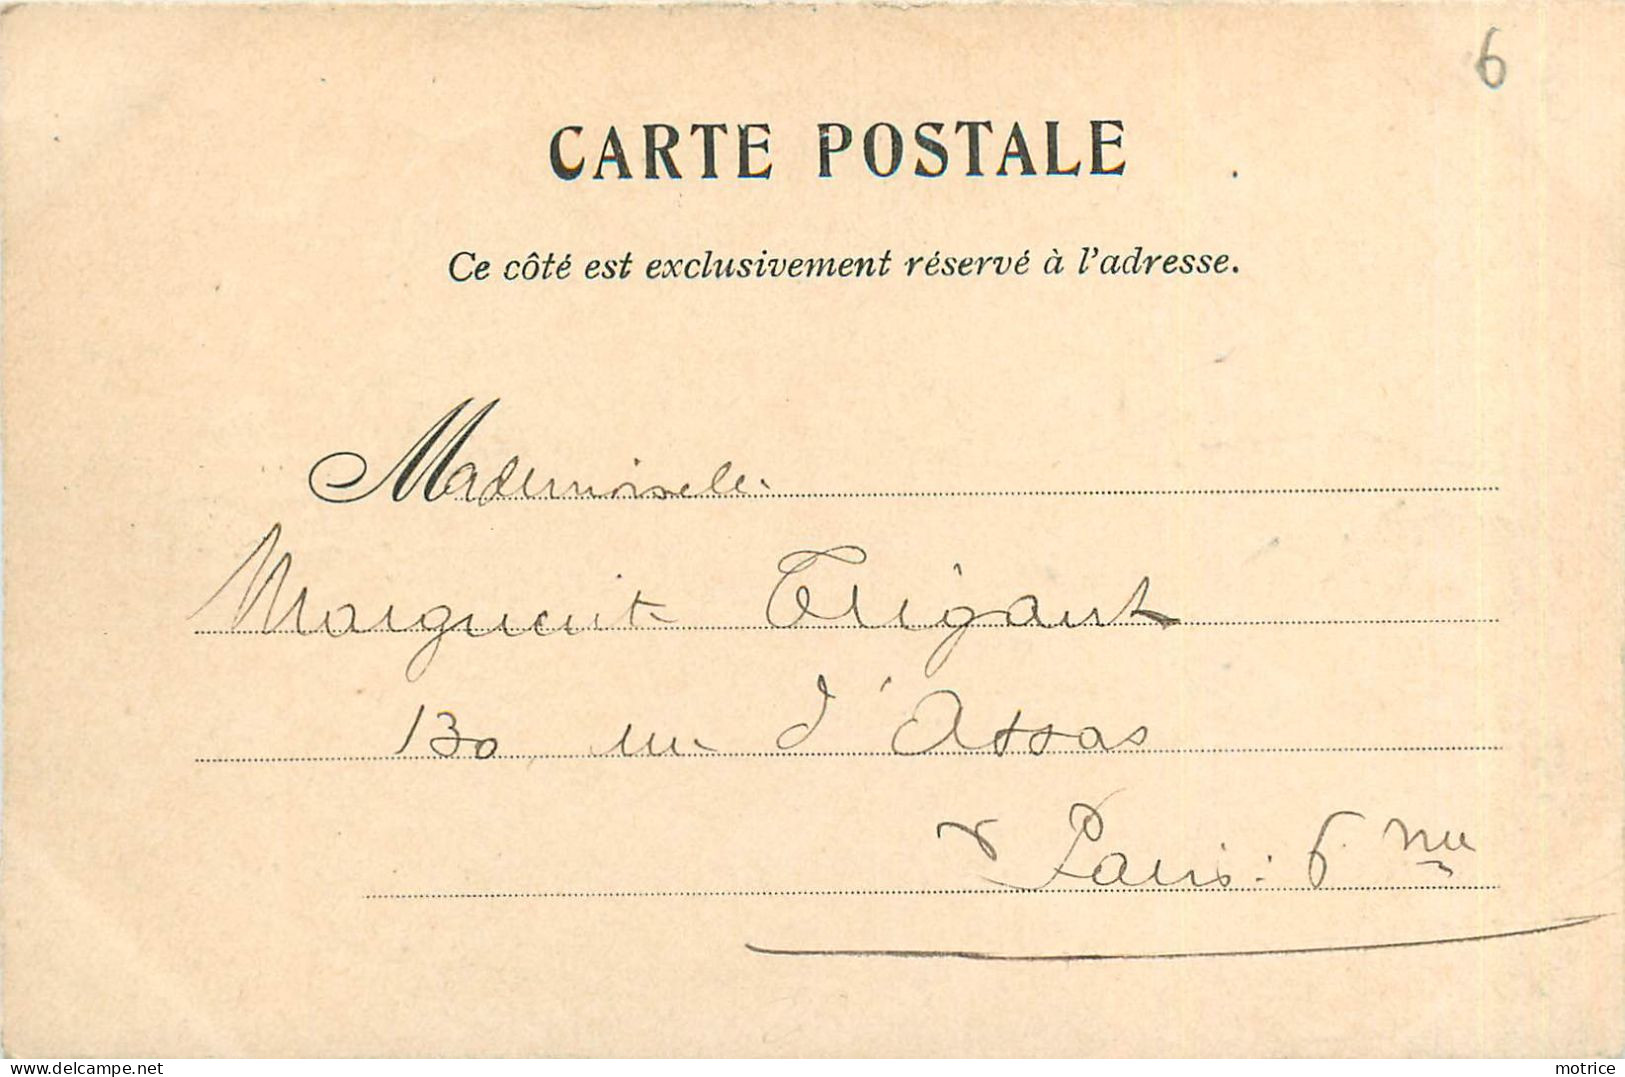 6
CARTE POSTALE
Ce côté est exclusivement réservé à l'adresse.
Mademoiselle
Marguerite Trigant
130 rue d'Assas
Paris: 6me
delcampe.net
motrice